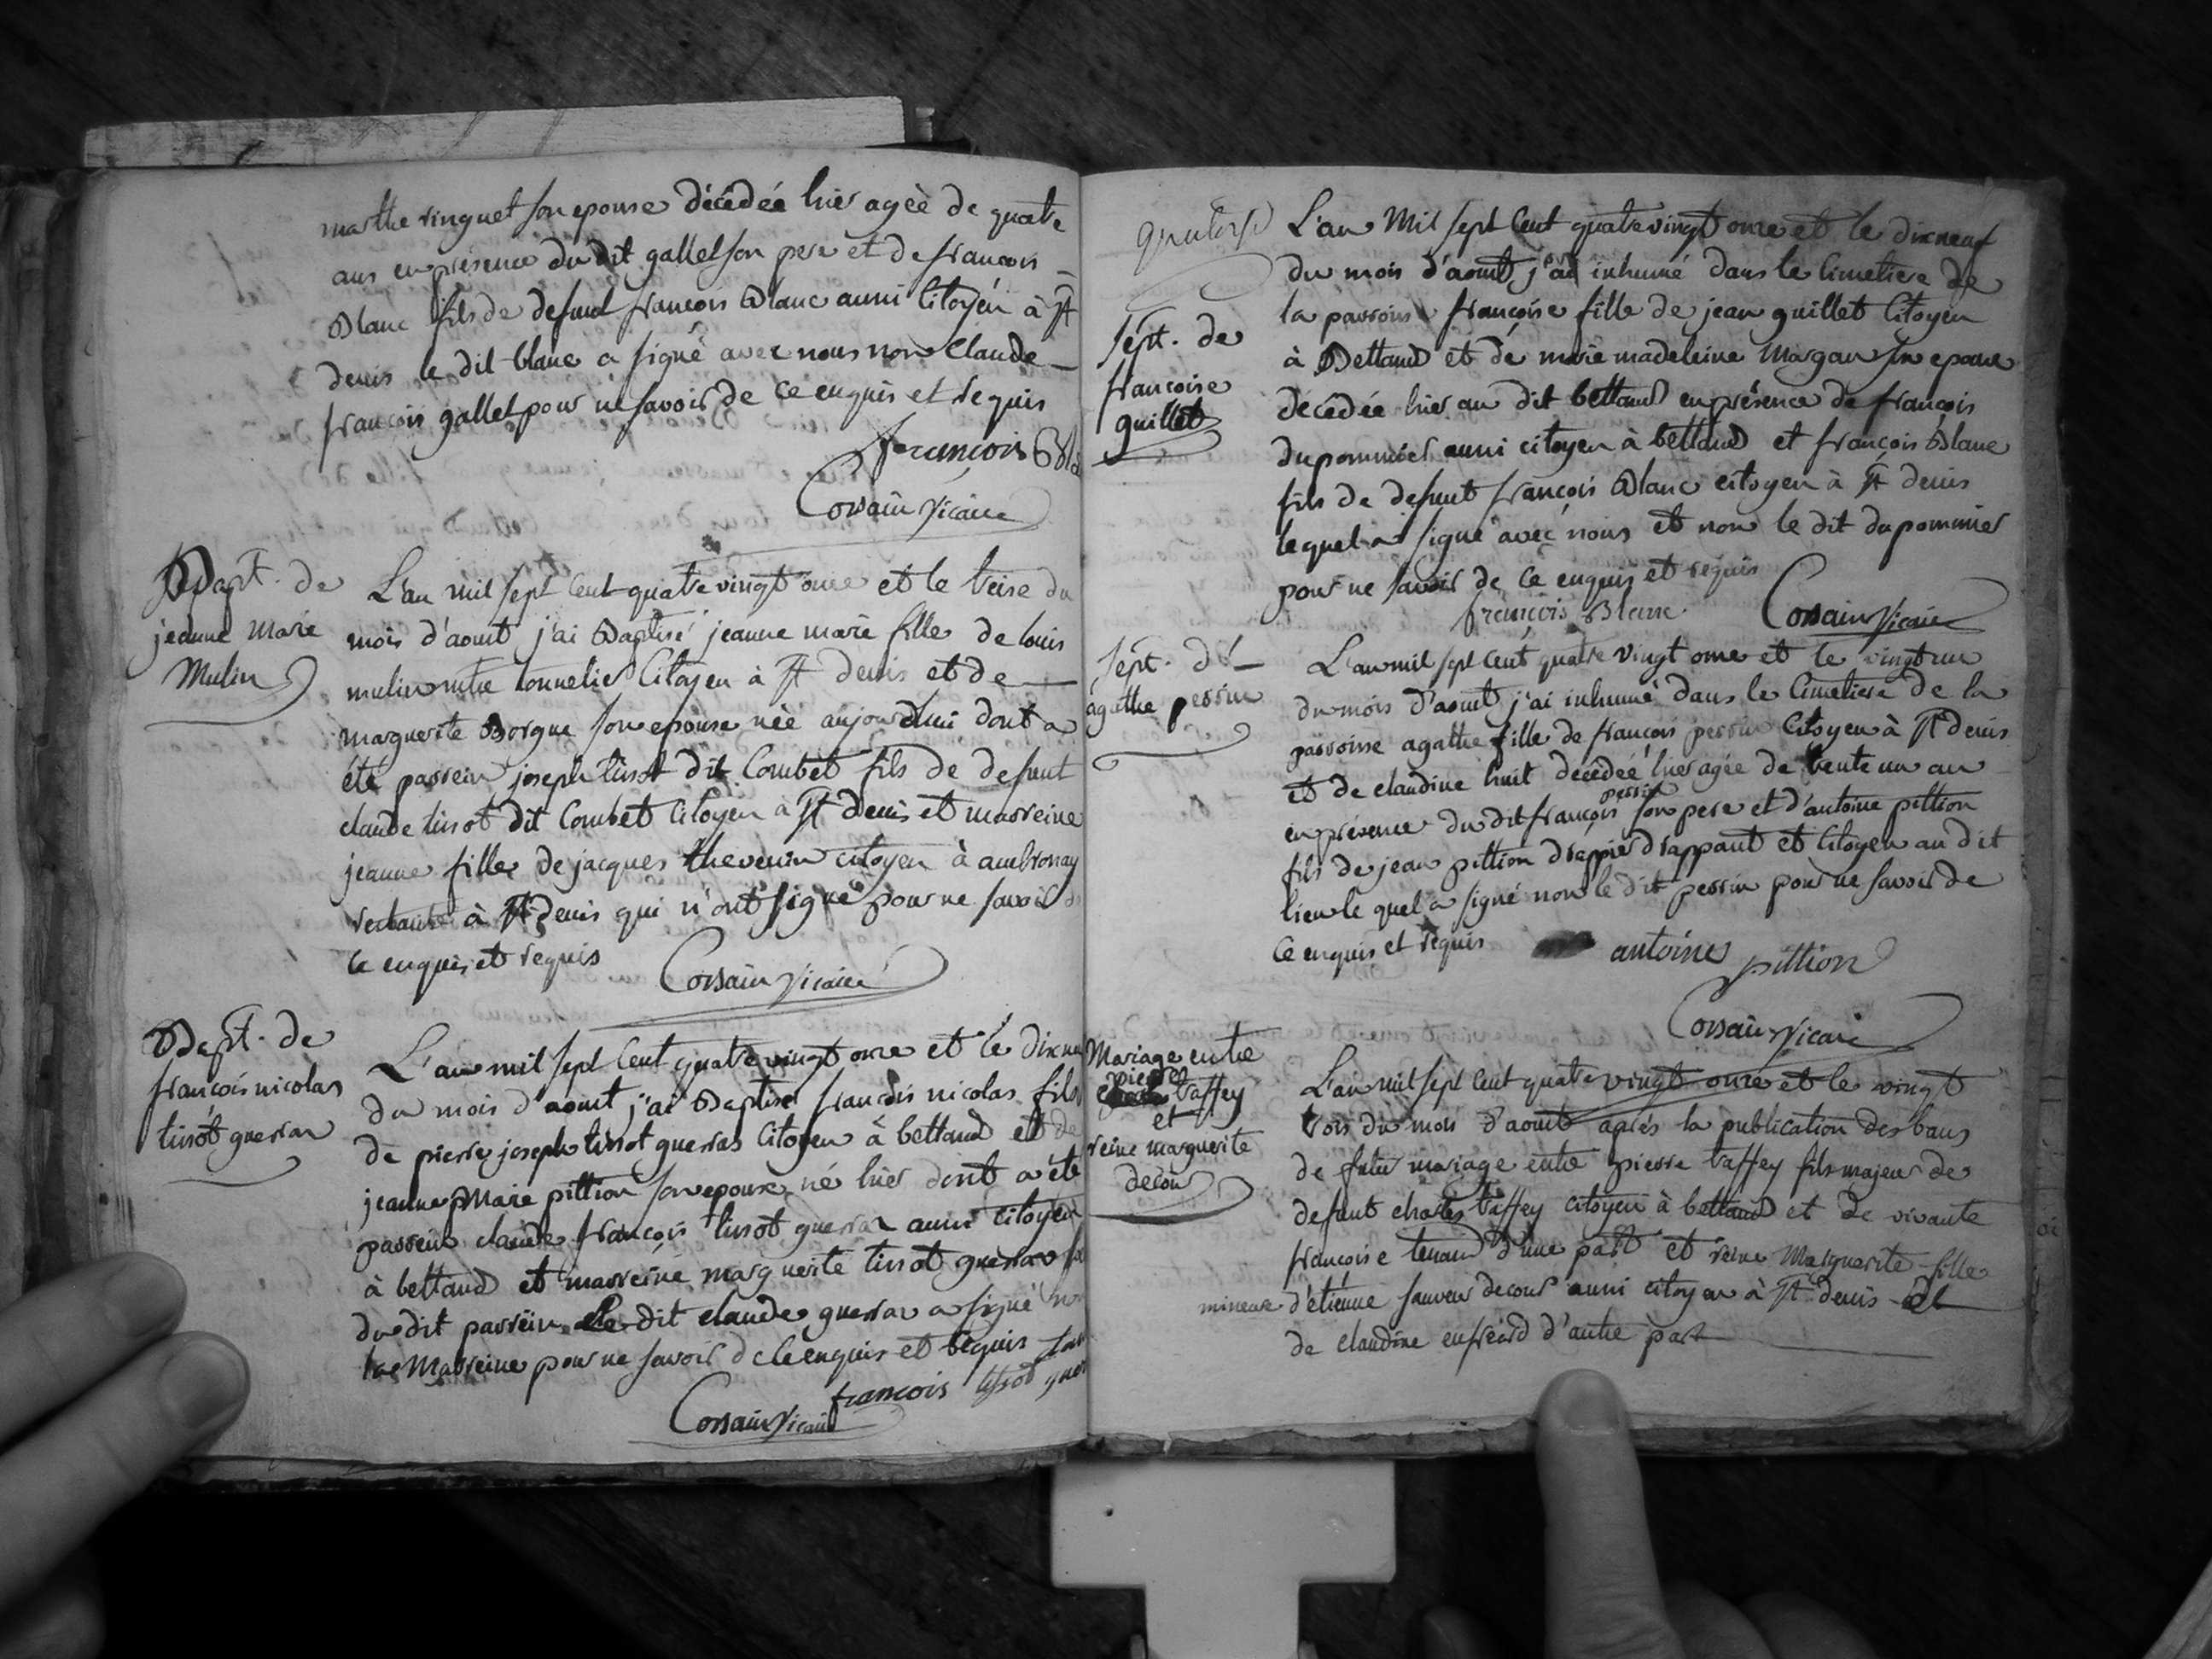 marthe vinguet son epouse décédéé hier ageè de quatre
ans en présence du dit gallet son pere et de francois
Blanc fils de defunt francois Blanc aussi Citoyen à St
denis le dit blanc a signé avec nous non Claude
françois gallet pour ne savoir de ce enquis et requis
francois Bla
Corsain vicaire
Bapt. de
jeanne marie
Mulin
L'an mil sept cent quatre vingt onze et le treise du
mois d'aoust j'ai Baptisé jeanne marie fille de louis
mulin mtre tonnelier Citoyen à St denis et de
marguerite Borgne son epouse néé aujourdhui dont a
été parrein joseph tissot dit Combet fils de defunt
claude tissot dit Combet Citoyen à St denis et marreine
jeanne fille de jacques thevenin citoyen à ambronay
à St denis qui n'ont signé pour ne savoir de
ce enquis et requis
Corsain vicaire
Bapt. de
françois nicolas
tissot guerrar
L'an mil sept cent quatre vingt onze et le dixneu
du mois d'aoust j'ai Baptisé francois nicolas fils
de pierre joseph tissot guerrar Citoyen à bettand et de
jeanne Marie pittion son epouse né hier dont a été
parrein claude françois tissot guerrar aussi citoyen
à bettand et marreine marguerite tissot guerrar
du dit parrein Le dit claude guerrar a signé non
la Marreine pour ne savoir de ce enquis et requis
francois tissot guer
Corsain vicaire
quatorse
L'an Mil sept Cent quatrevingt onze et le dixneuf
du mois d'aoust j'ai inhumé dans le Cimetiere de
la parroisse françoise fille de jean guillet Citoyen
à Bettand et de marie madeleine Margan son epouse
décédée hier au dit bettand en présence de françois
dupommier aussi citoyen à bettand et françois Blanc
fils de defunt françois Blanc citoyen à St denis
lequel a signé avec nous et non le dit dupommier
pour ne savoir de ce enquis et requis
françois Blanc
Corsain vicaire
Sept. de
francoise
guillet
Sept. d'
agathe perrin
L'an mil sept Cent quatre vingt onze et le vingt un
du mois d'aoust j'ai inhumé dans le Cimetiere de la
parroisse agathe fille de françois perrin Citoyen à St denis
et de claudine huit decédéé hier agée de trente un an
en présence du dit françois perrin son pere et d'antoine pittion
fils de jean pittion drappier drappant et Citoyen au dit
lieu le quel a signé non le dit perrin pour ne savoir de
ce enquis et requis
antoine pittion
Corsain vicaire
Mariage entre
pierre
taffey
et
reine marguerite
decour
L'an mil sept Cent quatre vingt onze et le vingt
trois du mois d'aoust après la publication des bans
de futur mariage entre pierre taffey fils majeur de
defunt charles taffey citoyen à bettand et de vivante
françoise tenand d'une part et reine Marguerite fille
mineure d'etienne sauveur decour aussi citoyen à St denis et
de claudine enfreard d'autre part